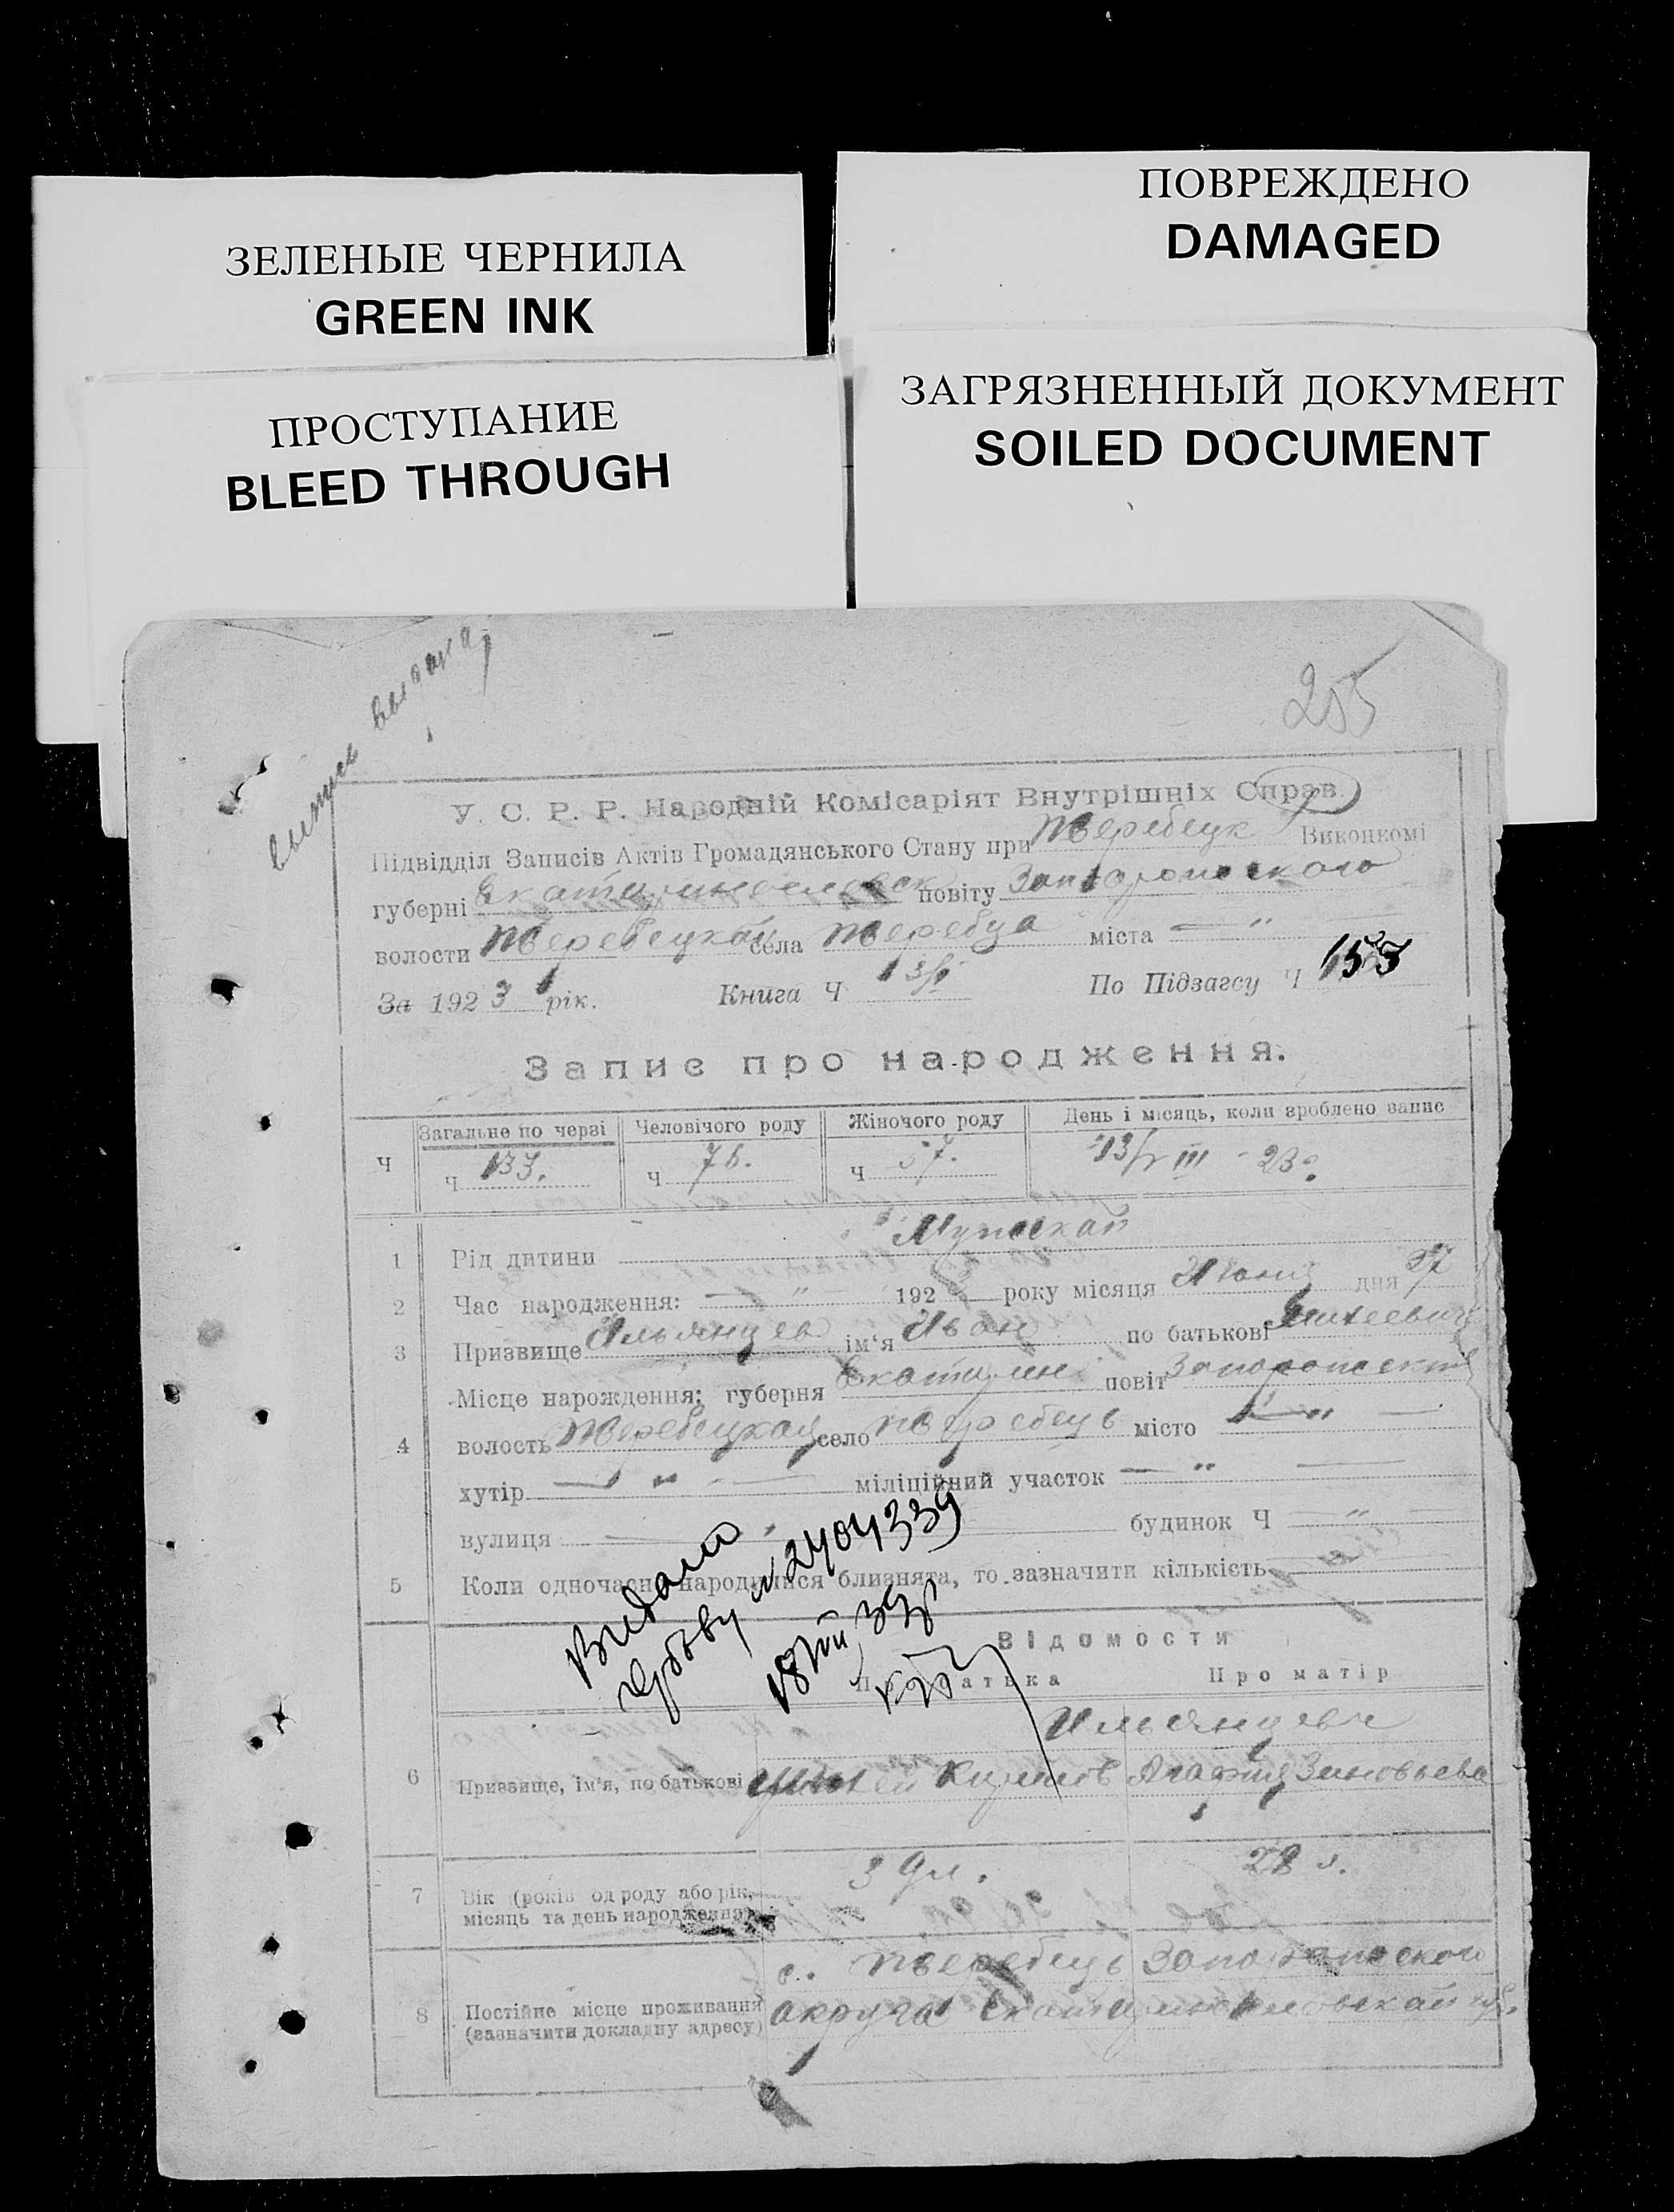 ЗЕЛЕНЫЕ ЧЕРНИЛА
GREEN INK
ПОВРЕЖДЕНО
DAMAGED
ПРОСТУПАНИЕ
BLEED THROUGH
ЗАГРЯЗНЕННЫЙ ДОКУМЕНТ
SOILED DOCUMENT
выпись выдана
205
У. С. Р. Р. Народній Комісаріят Внутрішніх Справ.
Підвідділ Записів Актів Громадянського Стану при Теребецк Виконкомі
губерні Екатеринославск повіту Запорожского
волости Теребецкой села Теребца міста — " —
За 1923 рік. Книга Ч По Підзагсу Ч
Запис про народження.
Загальне по черзі Человічого роду Жіночого роду День і місяць, коли зроблено запис
Ч Ч 133. Ч 76. Ч 57. 13/III - 23
1 Рід дитини Мужской
2 Час народження: — " — 192 року місяця дня 27
3 Призвище Ильянцев ім'я Иван по батькові
Місце нарождення: губерня Екатерин повіт Запорожский
4 волость Теребецкая село Теребець місто — " —
хутір — " — міліційний участок — " —
вулиця — будинок Ч — " —
5 Коли одночасно народилися близнята, то зазначити кількість
Видани
№ 2404339
Відомости
Про батька Про матір
Ильянцевы
6 Призвище, ім'я, по батькові Агафия Зиновьева
7 Вік (років од роду або рік, місяць та день народження) 28 л.
с. Теребець Запорожского
8 Постійне місце проживання (зазначити докладну адресу) округа Екатеринославской губ.